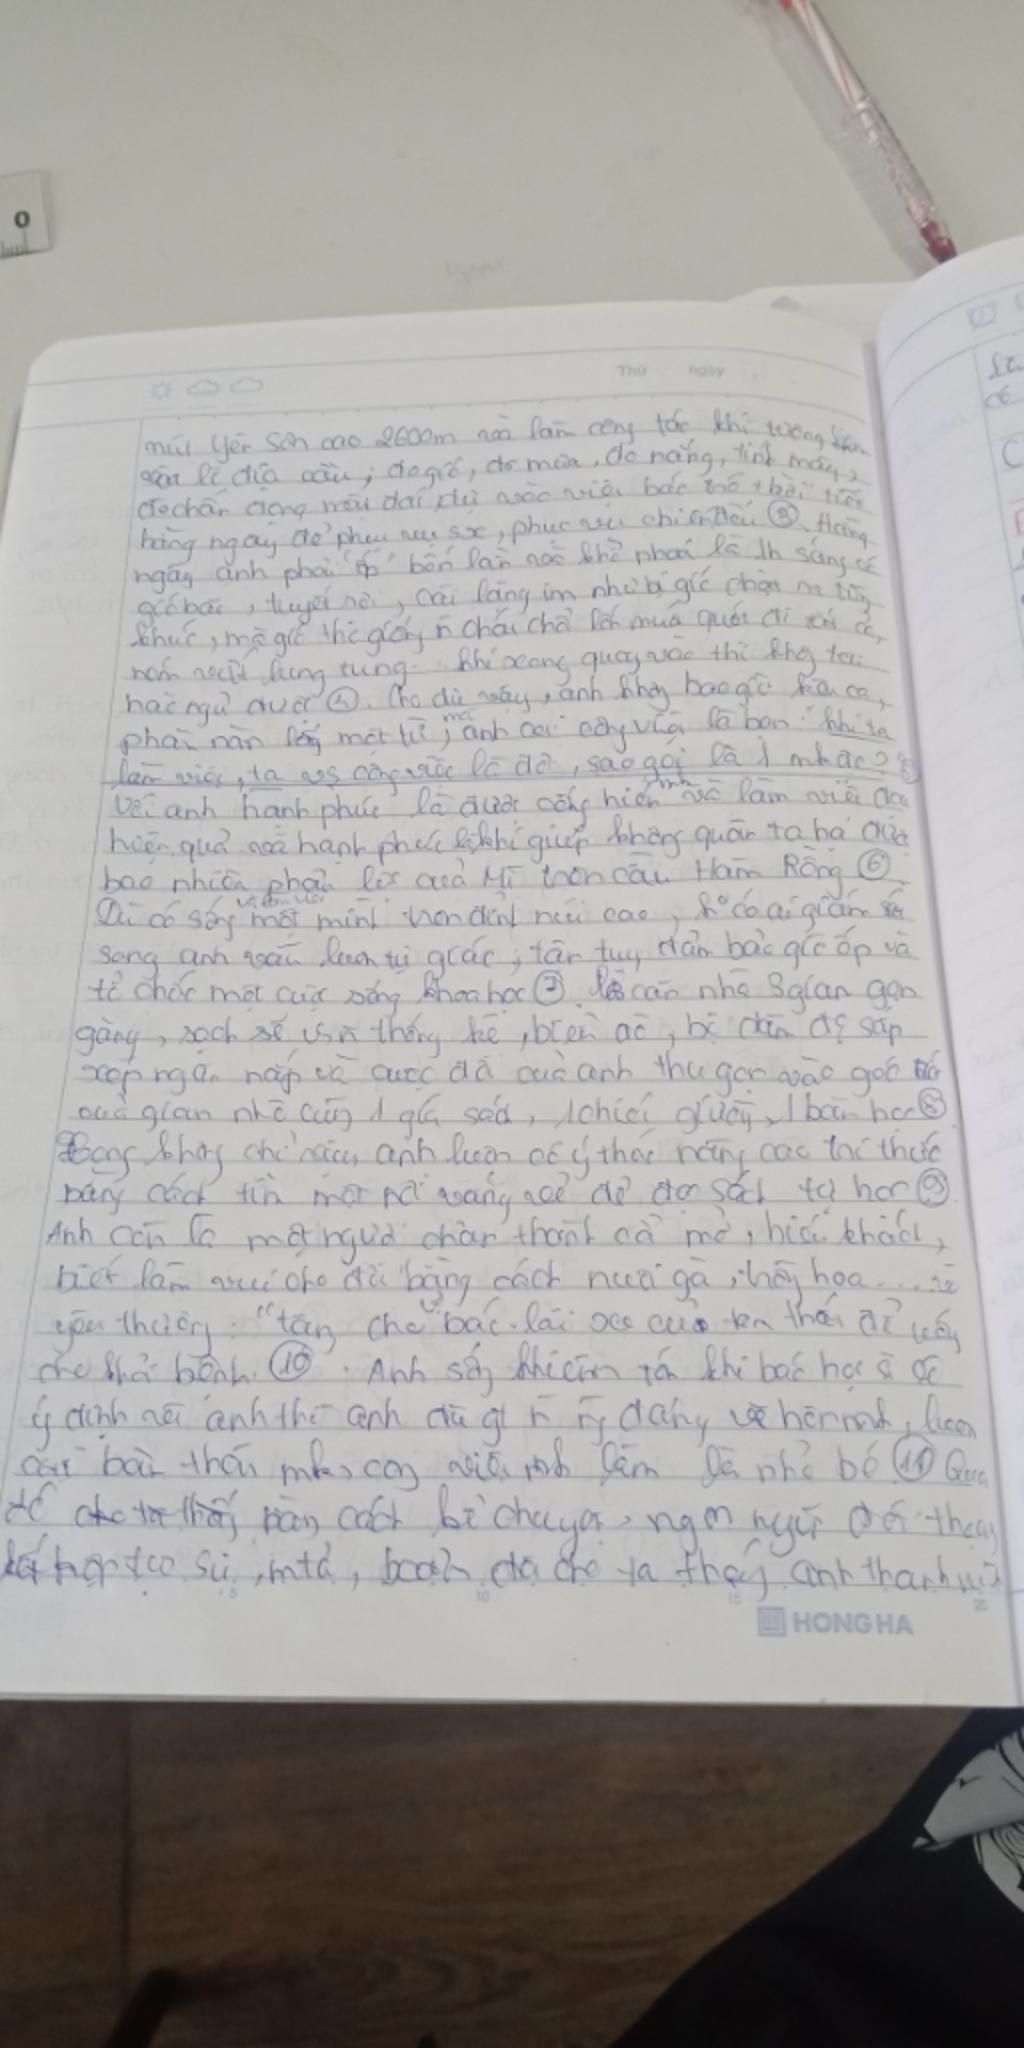 0
Thứ ngày
núi Yên Sơn cao 2600m và làm công tác khí tượng kiêm
vật lí địa cầu; đo gió, đo mưa, đo nắng, tính mây,
đo chấn động mặt đất, dự vào việc báo trước thời tiết
hàng ngày để phục vụ sx, phục vụ chiến đấu ③. Hàng
ngày anh phải "ốp" bốn lần mà khổ nhất là 1h sáng có
gió bão, tuyết rơi, cái lặng im như bị gió chặt ra từng
khúc, mà gió thì giống n chổi chổ lớn muốn quét đi tất cả,
ném vứt lung tung. Khi xong quay vào thì khg tài
nào ngủ được ④. Cho dù vậy, anh khg bao giờ kêu ca,
phàn nàn lấy một từ, mà anh coi công việc là bạn "khi ta
làm việc, ta vs công việc là đôi, sao gọi là 1 mình đc?" ⑤
Với anh hạnh phúc là được cống hiến mình và làm việc có
hiệu quả và hạnh phúc là khi giúp không quân ta hạ được
bao nhiêu phản lực của Mĩ trên cầu Hàm Rồng ⑥
Dù có sống một mình trên đỉnh núi cao, ko có ai giám sát
song anh vẫn luôn tự giác, tận tụy đảm bảo giờ ốp và
tổ chức một cuộc sống khoa học ⑦. căn nhà 3 gian gọn
gàng, sạch sẽ với thống kê, biểu đồ, bộ đàm đc sắp
xếp ngăn nắp và cuộc đời của anh thu gọn vào góc trái
của gian nhà cùng 1 giá sách, 1 chiếc giường, 1 bàn học ⑧
không chỉ vậy, anh luôn có ý thức nâng cao tri thức
bằng cách tìm một nơi vắng vẻ để đọc sách tự học ⑨
Anh còn là một người chân thành cởi mở, hiếu khách,
biết làm vui cho đời bằng cách nuôi gà, trồng hoa.... và
yêu thương: "tặng cho bác lái xe củ tam thất để vợ
cho khỏi bệnh. ⑩. Anh sống khiêm tốn khi bác họa sĩ có
ý định vẽ anh thì anh đã gt n ng đáng vẽ hơn mh, luôn
coi bản thân mh, cog việc mh làm là nhỏ bé ⑪ Qua
đó bằng cách kể chuyện, ngôn ngữ đối thoại
kết hợp tự sự, mtả, đoạn đã cho ta thấy anh thanh niên
5 10 15 20
HONG HA